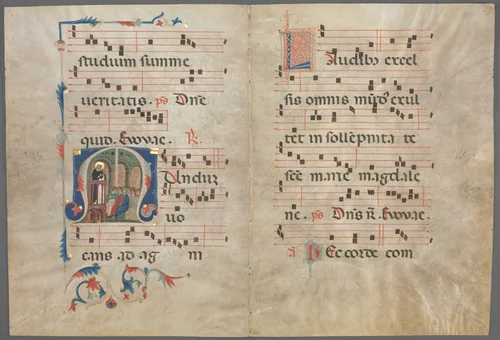 studium summe
ueritatis. ps Dnse
quid. Evovae. R.
Munduz
uo
cans ad ag ni
Laudibꝫ excel
sis omnis exul
tet in sollēpnita te
scē marie magdale
ne. ps Dns R. Evovae.
a Hec corde com